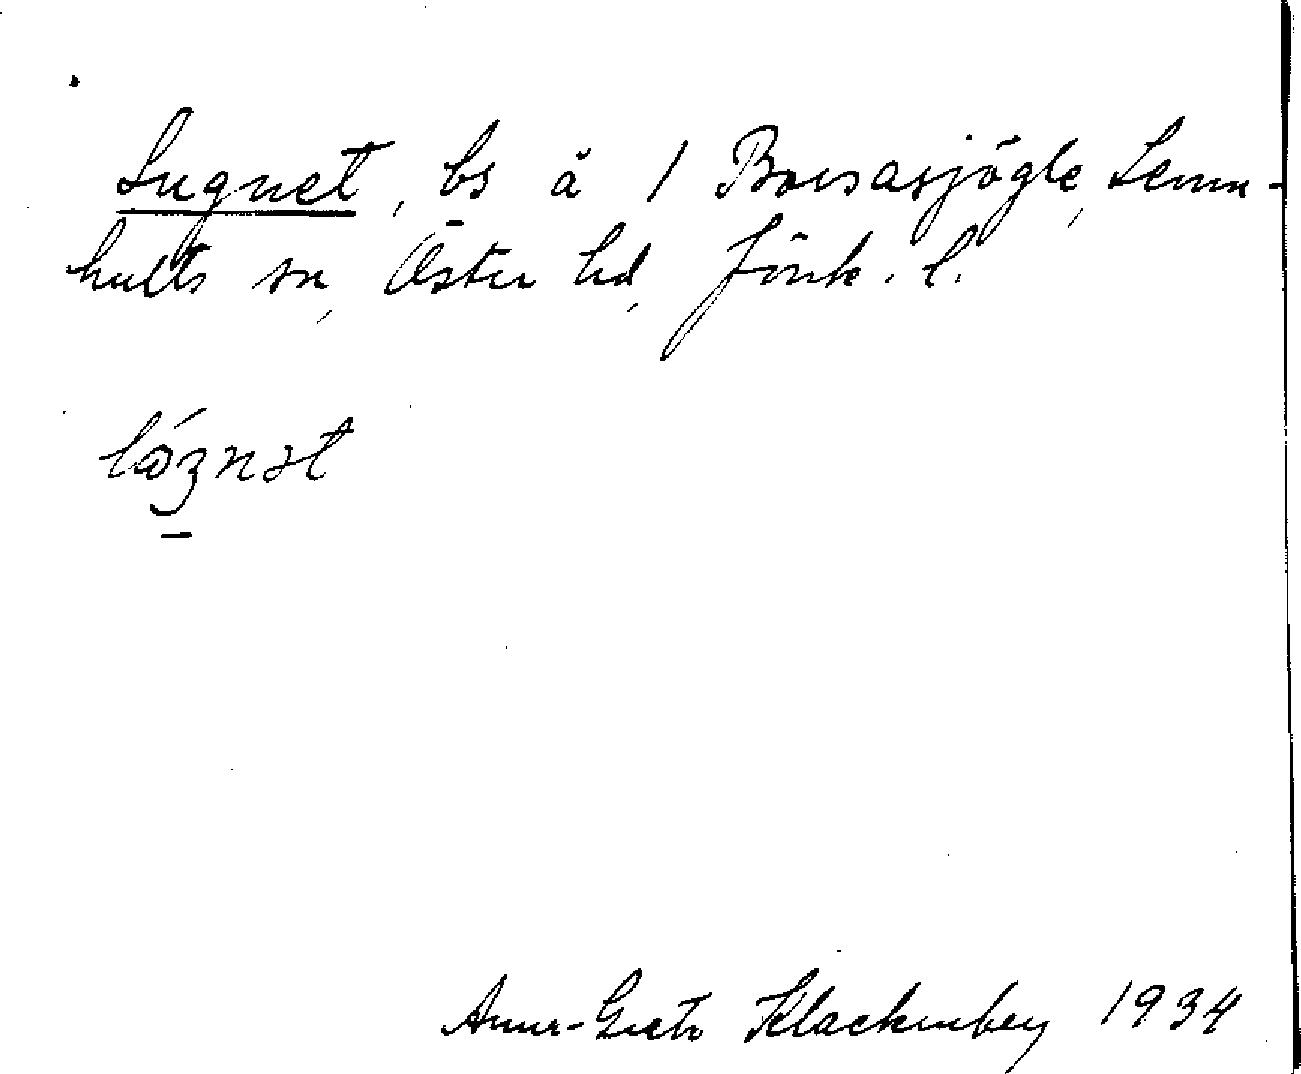 Lugnet, bs å 1 Boarsasjögle, Lemn-
hults sn, Östra hd, Jönk. l.
lóznət
Anna-Greta Klackenberg 1934